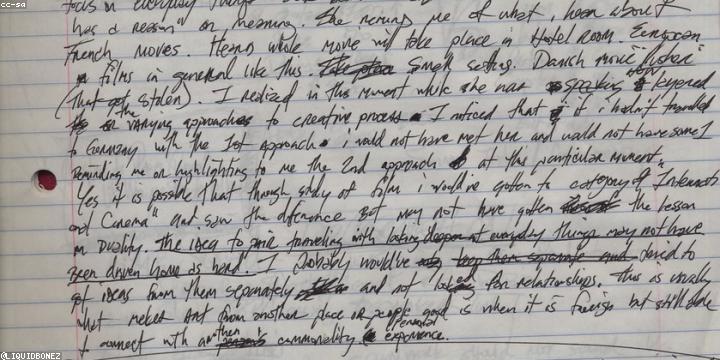 cc-sa
focus on everyday things
has a reason" or meaning. She reminds me of what i hear about
French movies. Here's whole movie will take place in Hotel Room. European
films in general like this. Small setting. Danish movie
(that got stolen). I realized in this moment while she was speaking
the varying approaches to creative process I noticed that if i hadn't traveled
to Germany with the 1st approach i would not have met her and would not have some1
reminding me or highlighting to me the 2nd approach at this particular moment.
Yes it is possible that through study of film i would've gotten to category of "Internat's
and Cinema" and saw the difference But may not have gotten the lesson
in Duality. The idea to pair traveling with looking deeper at everyday things may not have
Been driven home as hard. I probably would've kept them separate and decided to
got ideas from them separately and not looked for relationships. This is usually
what makes art from another place or people good is when it is foreign but still able
to connect with another commonality personal experience.
@LIQUIDBONEZ